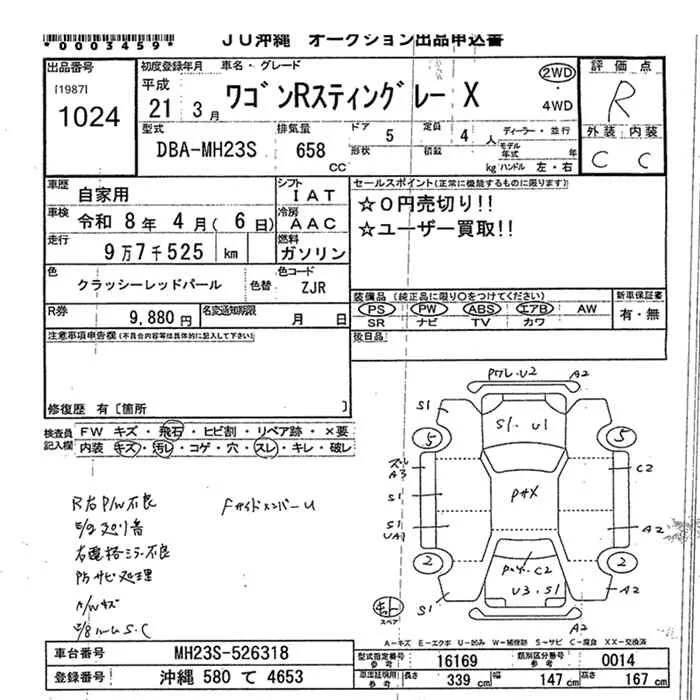 *0003459* JU沖縄 オークション出品申込書
出品番号 初度登録年月 車名・グレード 評価点
[1987] 1024
平成 21 3月 ワゴンRスティングレー X 2WD 4WD
R
型式 排気量 ドア 5 定員 4人 ディーラー・並行
DBA-MH23S 658 CC 形状 積載 kg モデル年式 年 ハンドル 左・右
外装 内装
C C
車歴 自家用 シフト IAT
車検 令和 8年 4月( 6日) 冷房 AAC
走行 9万7千525 km 燃料 ガソリン
色 クラッシーレッドパール 色替 色コード ZJR
R券 9,880円 名変通知期限 月 日
セールスポイント(正常に機能するものに限ります)
☆0円売切り!!
☆ユーザー買取!!
装備品(純正品に限り○をつけてください) 新車保証書
PS PW ABS エアB AW 有・無
SR ナビ TV カワ
後日品
注意事項申告欄(不具合内容等は具体的に記入して下さい)
修復歴 有〔箇所 〕
検査員記入欄 FW キズ・飛石・ヒビ割・リペア跡・×要
内装 キズ・汚レ・コゲ・穴・スレ・キレ・破レ
R右P/W不良
FサイドメンバーU
右電格ミラー不良
サビ処理
A/Wキズ
S.C
U2 A2
S1 S1.U1 A2
5 5
A3 C2
S1 PﾅX
S1 A2
UA1
2 2
C2
U3.S1
S1 A2
スペア
A-キズ E-エクボ U-凹み W-補修跡 S-サビ C-腐食 XX-交換済
車台番号 MH23S-526318
登録番号 沖縄 580 て 4653
型式指定番号 参考 16169 類別区分番号 参考 0014
車両延税用 参考 長さ 339 cm 幅 147 cm 高さ 167 cm